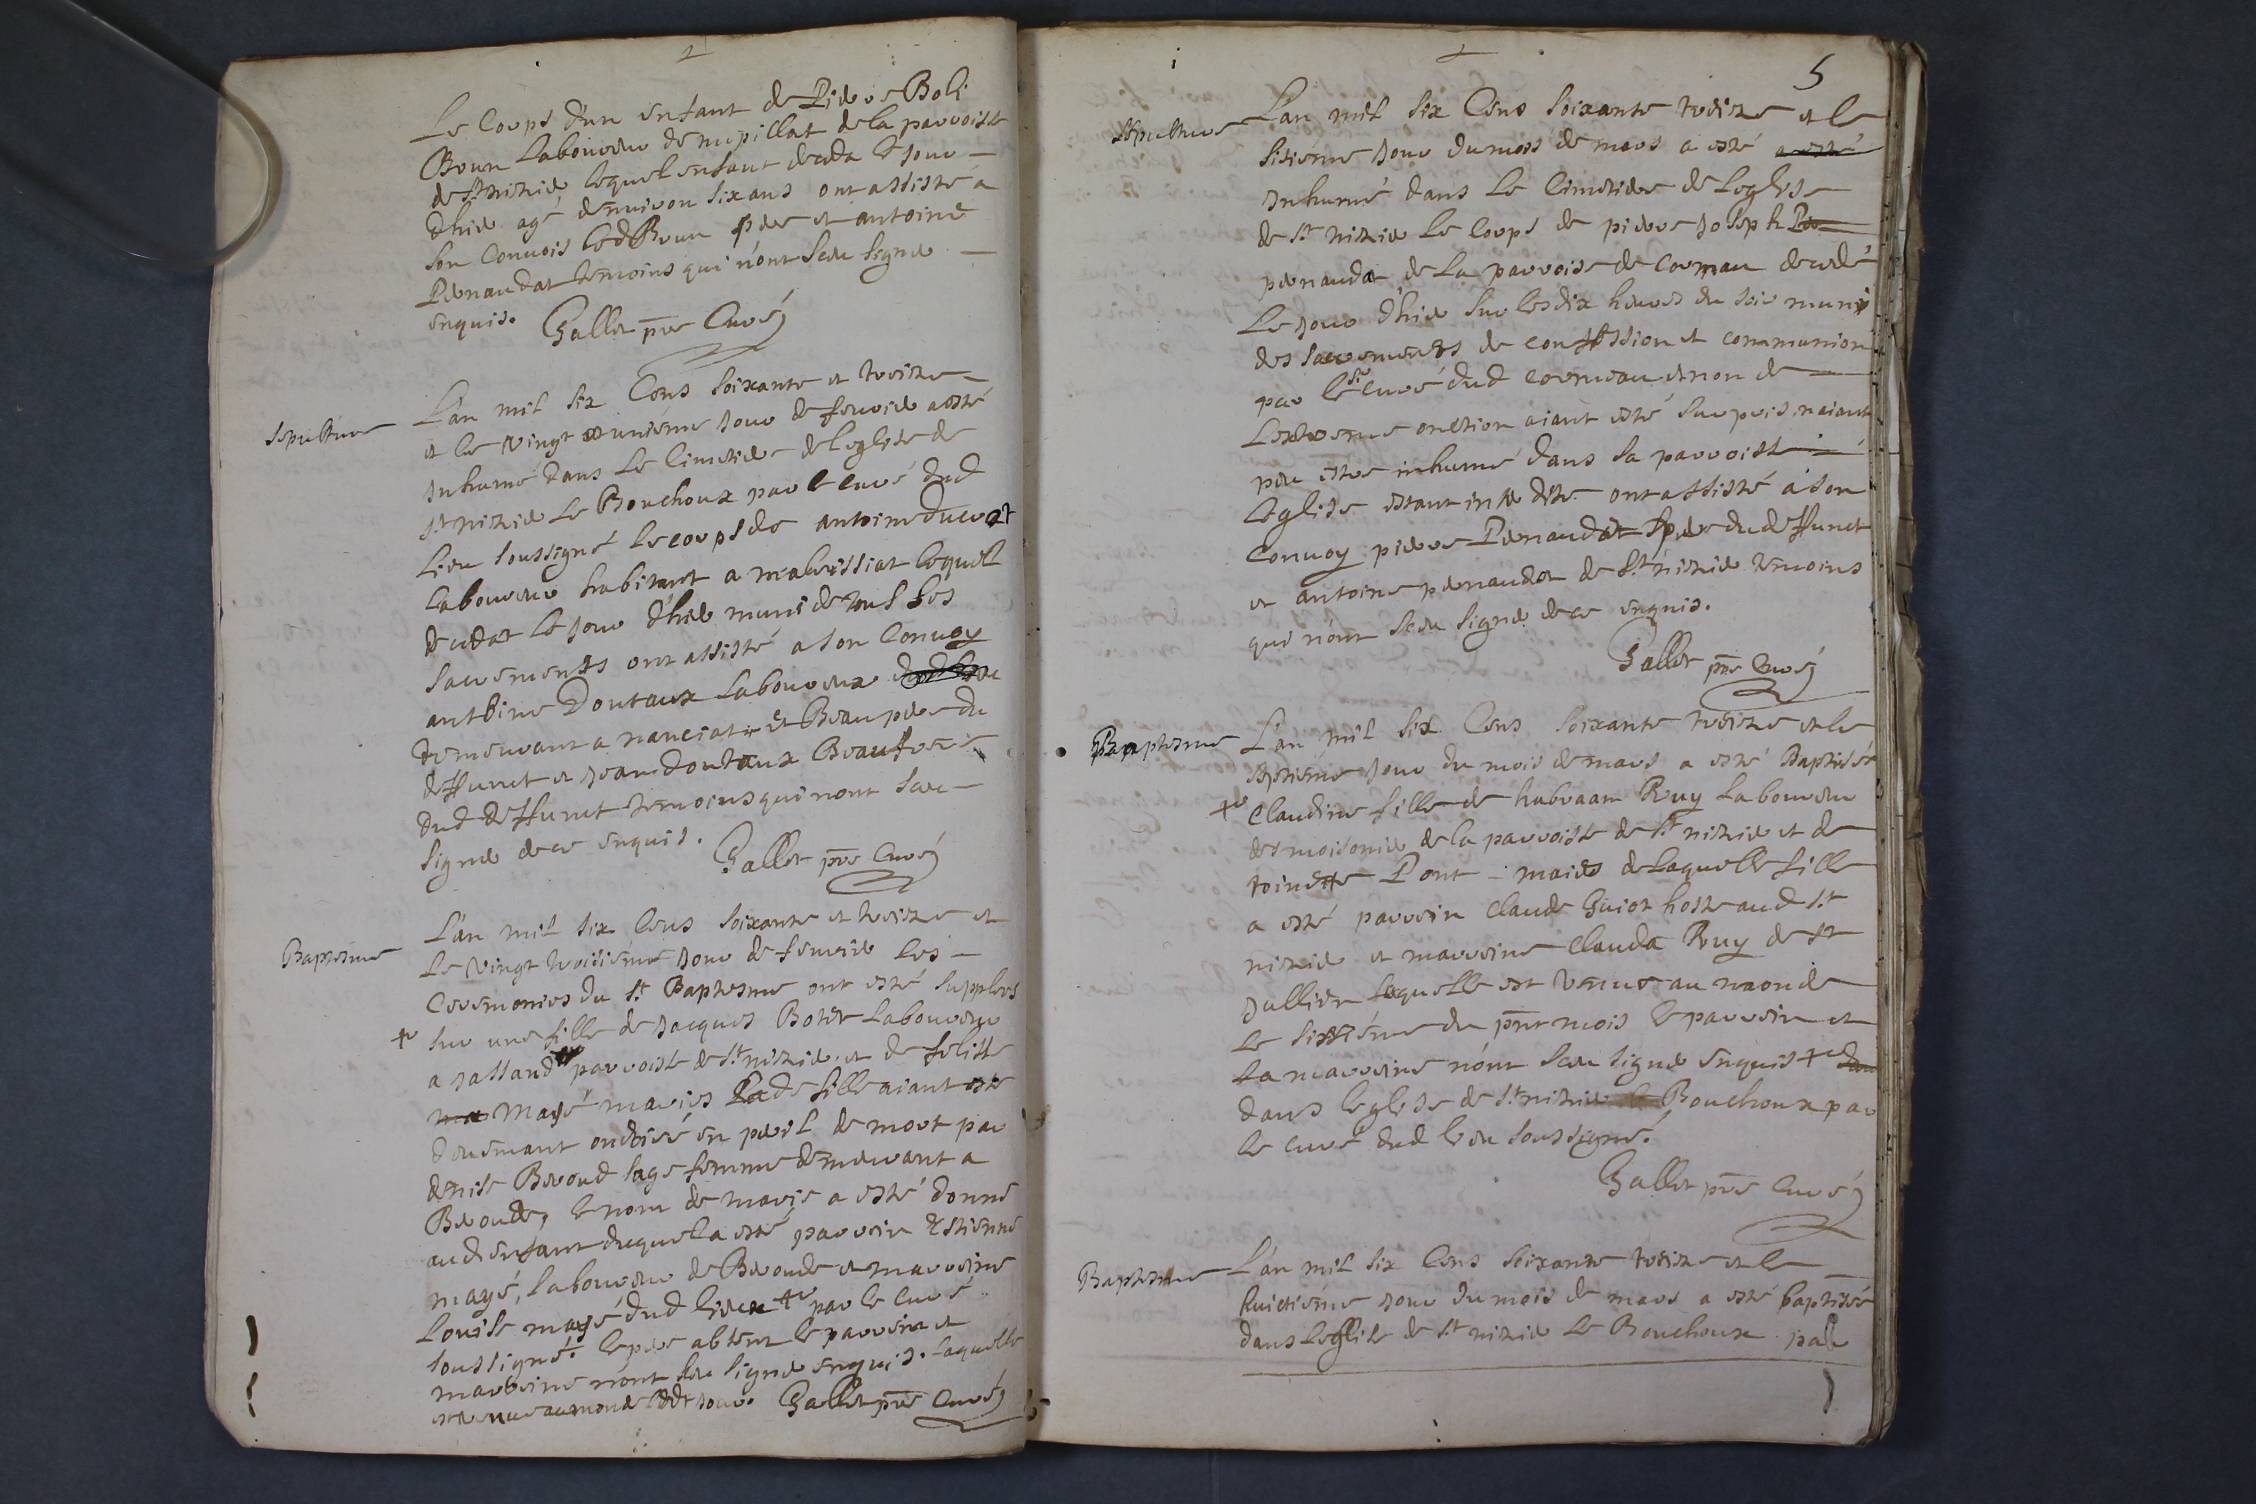 Le Corps d'un enfant de Pierre Boli
Brun Laboureur de mipillat de la parroisse
de st nizie lequel enfant deceda le jour
d'hier agé d'environ six ans ont assisté a
son Convois led Brun pere et antoine
Penaudat temoins qui n'ont sceu signer
enquis. Gallet pre Curé
Sepulture
L'an mil six Cens soixante et treize
et le vingt et unieme jour de fevrier a esté
inhumé dans Le Cimetiere de leglise de
st nizie Le Bouchoux par le curé dud
Lieu soussigné le corps de antoine
Laboureur habitant a lequel
deceda Le jour d'hier muni de tous ses
sacrements ont assisté a son Convoy
anthoine Doutaux Laboureux
demeurant a nanciat et Beau pere du
deffunct et jean doutaux Beaufrere
dud deffunct temoins qui n'ont sceu
signer de ce enquis.
Gallet pre Curé
Baptesme
L'an mil six Cens soixante et treize et
Le vingt troisiéme jour de fevrier Les
Ceremonies du st Baptesme ont esté supplees
sur une fille de jacques Boter Laboureur
a parroisse de st nizie et de felisse
Mayé mariés Lad fille aiant esté
devement ondoiée en peril de mort par
denise Beroud sage femme demeurant a
Beroude, le nom de marie a esté donné
aud enfant duquel a esté parrein Estienne
mayé, laboureur de Beroude et marreine
Louise mayé dud lieu par le curé
soussigné. le pere absent le parrein et
marreine n'ont sceu signer enquis. laquelle
est venue au monde led jour. Gallet pre Curé
5
Sepulture
L'an mil six Cens soixante treize et le
sixiéme jour du mois de mars a esté a esté
inhumé dans Le Cimetiere de Leglise
de st nizie Le Corps de pierre joseph Pe
penaudat de la parroise de Cormau decedé
Le jour d'hier sur les dix heures du soir muni
des sacrements de confession et communion
par le sr curé dud cormau et non de
Lextreme onction aiant esté surpris, n'aiant
peu estre inhumé dans sa parroisse
leglise estant interdite ont assisté a son
Convoy pierre Penaudat pere du deffunct
et antoine penaudat de st nizie temoins
qui n'ont sceu signer de ce enquis.
Gallet pre Curé
Baptesme
L'an mil six Cens soixante treize et le
septieme jour du mois de mars a esté Baptisée
Claudine fille de habraam Ruy laboureur
des moisonie de la parroisse de st nizie et de
toinette Pont mariés de laquelle fille
a esté parrein Claude Guiot hoste aud st
nizie et marreine Clauda Ruy de st
jullien laquelle est venue au monde
Le sixiéme du pnt mois le parrein et
La marreine n'ont sceu signer enquis
dans leglise de st nizie le Bouchoux par
le curé dud lieu soussigné.
Gallet pre Curé
Baptesme
L'an mil six Cens soixante treize et le
huictiéme jour du mois de mars a esté baptisée
dans leglise de st nizie Le Bouchoux par